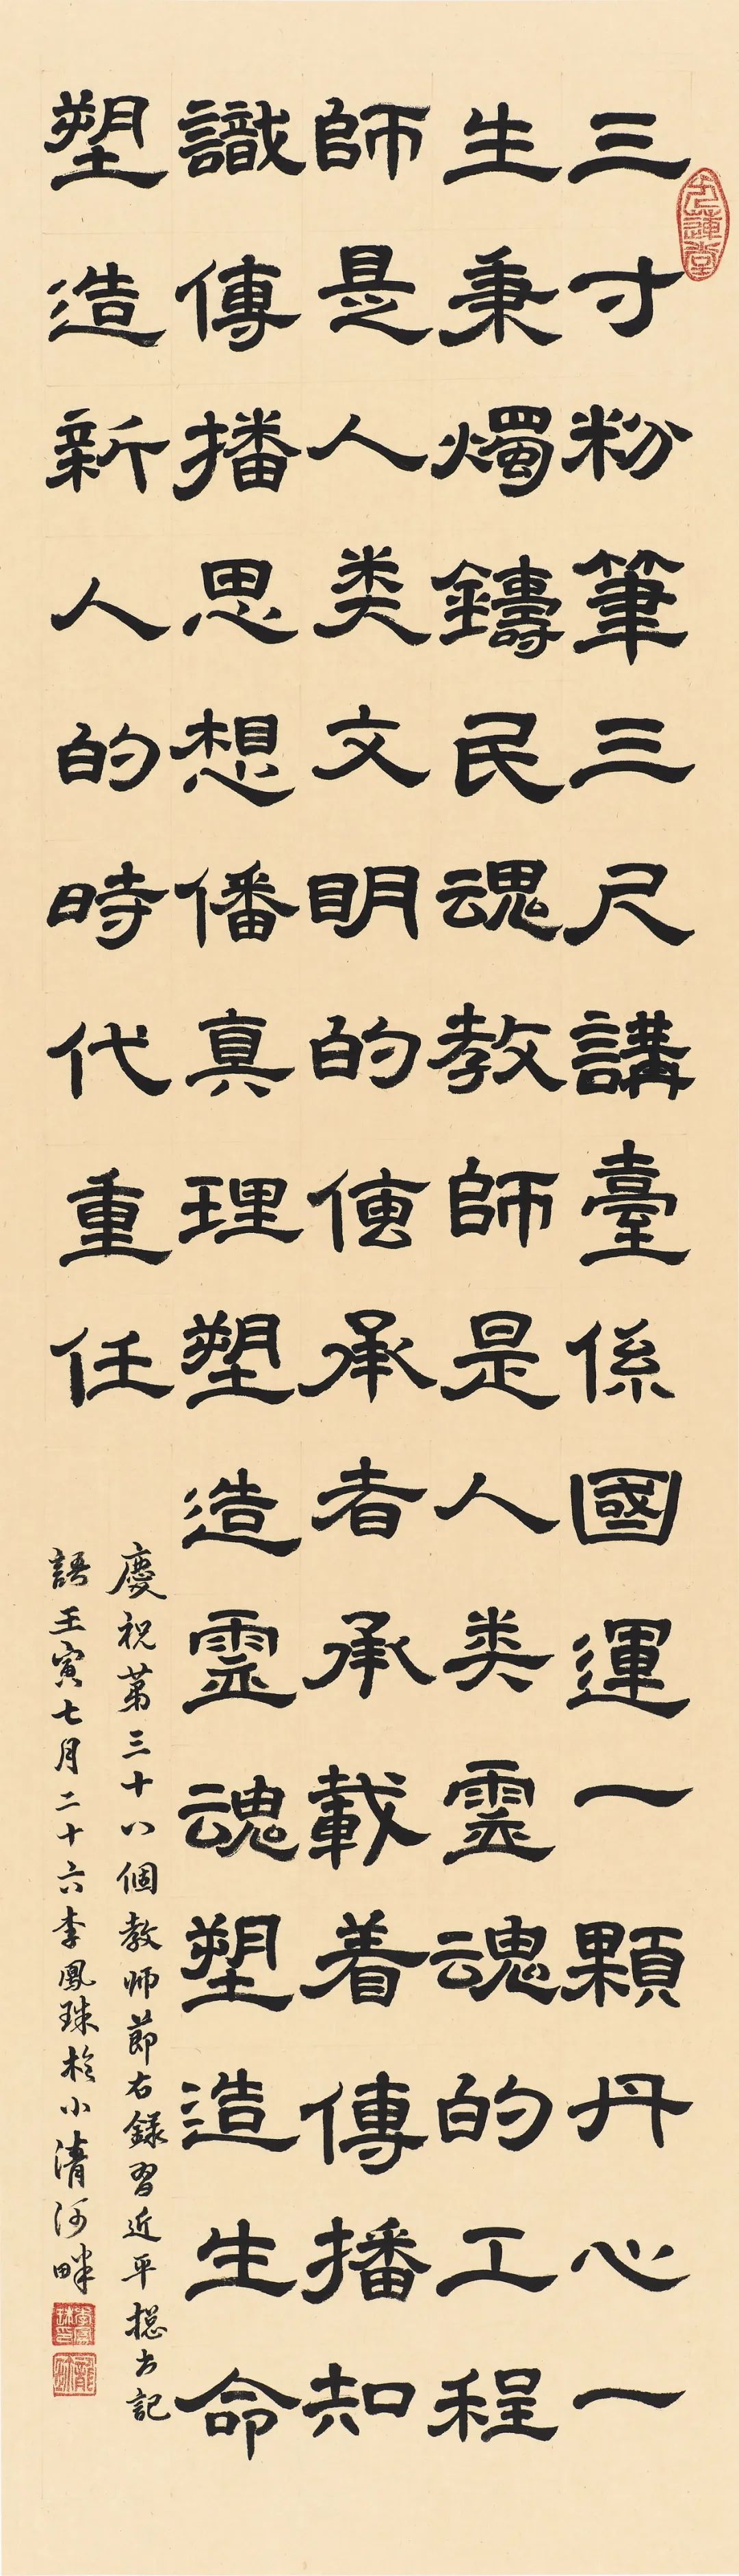 三寸粉筆三尺講臺係國運一顆丹心一
生秉燭鑄民魂教師是人类靈魂的工程
師是人类文明的傳承者承載着傳播知
識傳播思想傳播真理塑造靈魂塑造生命
塑造新人的時代重任
慶祝第三十八個教师節右錄習近平總书記
語壬寅七月二十六李鳳珠於小清河畔